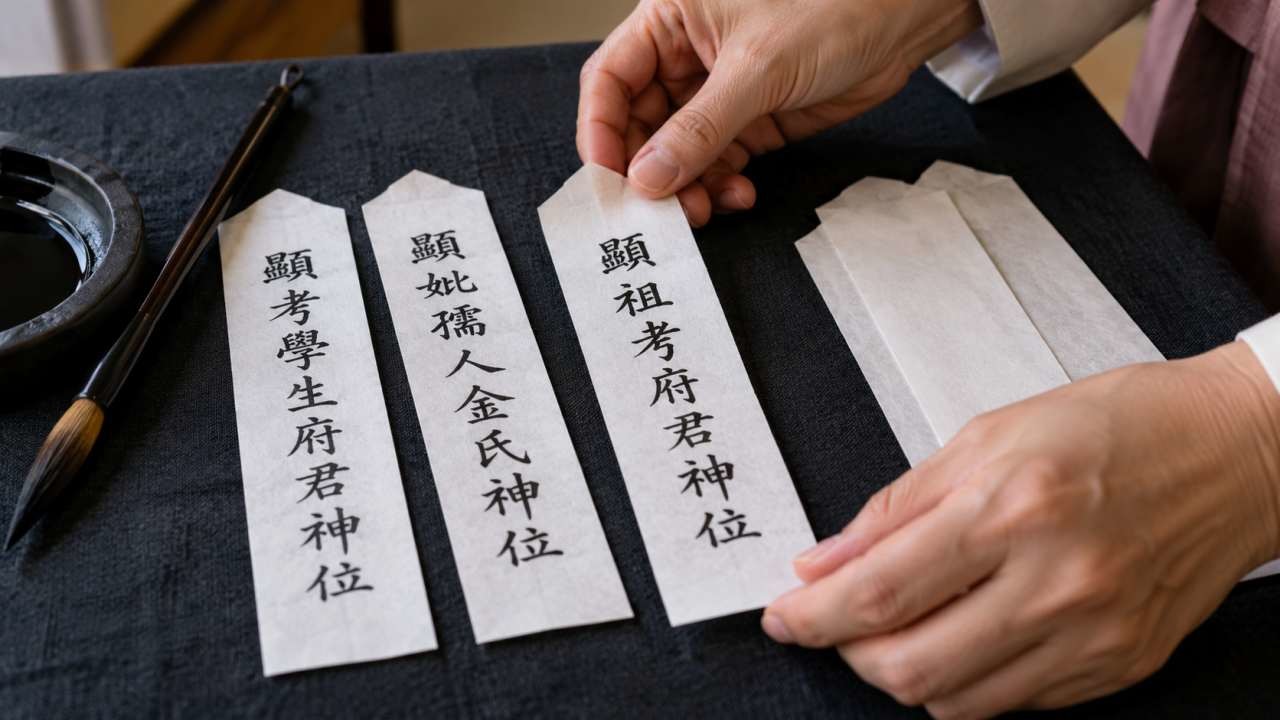 顯考學生府君神位
顯妣孺人金氏神位
顯祖考府君神位